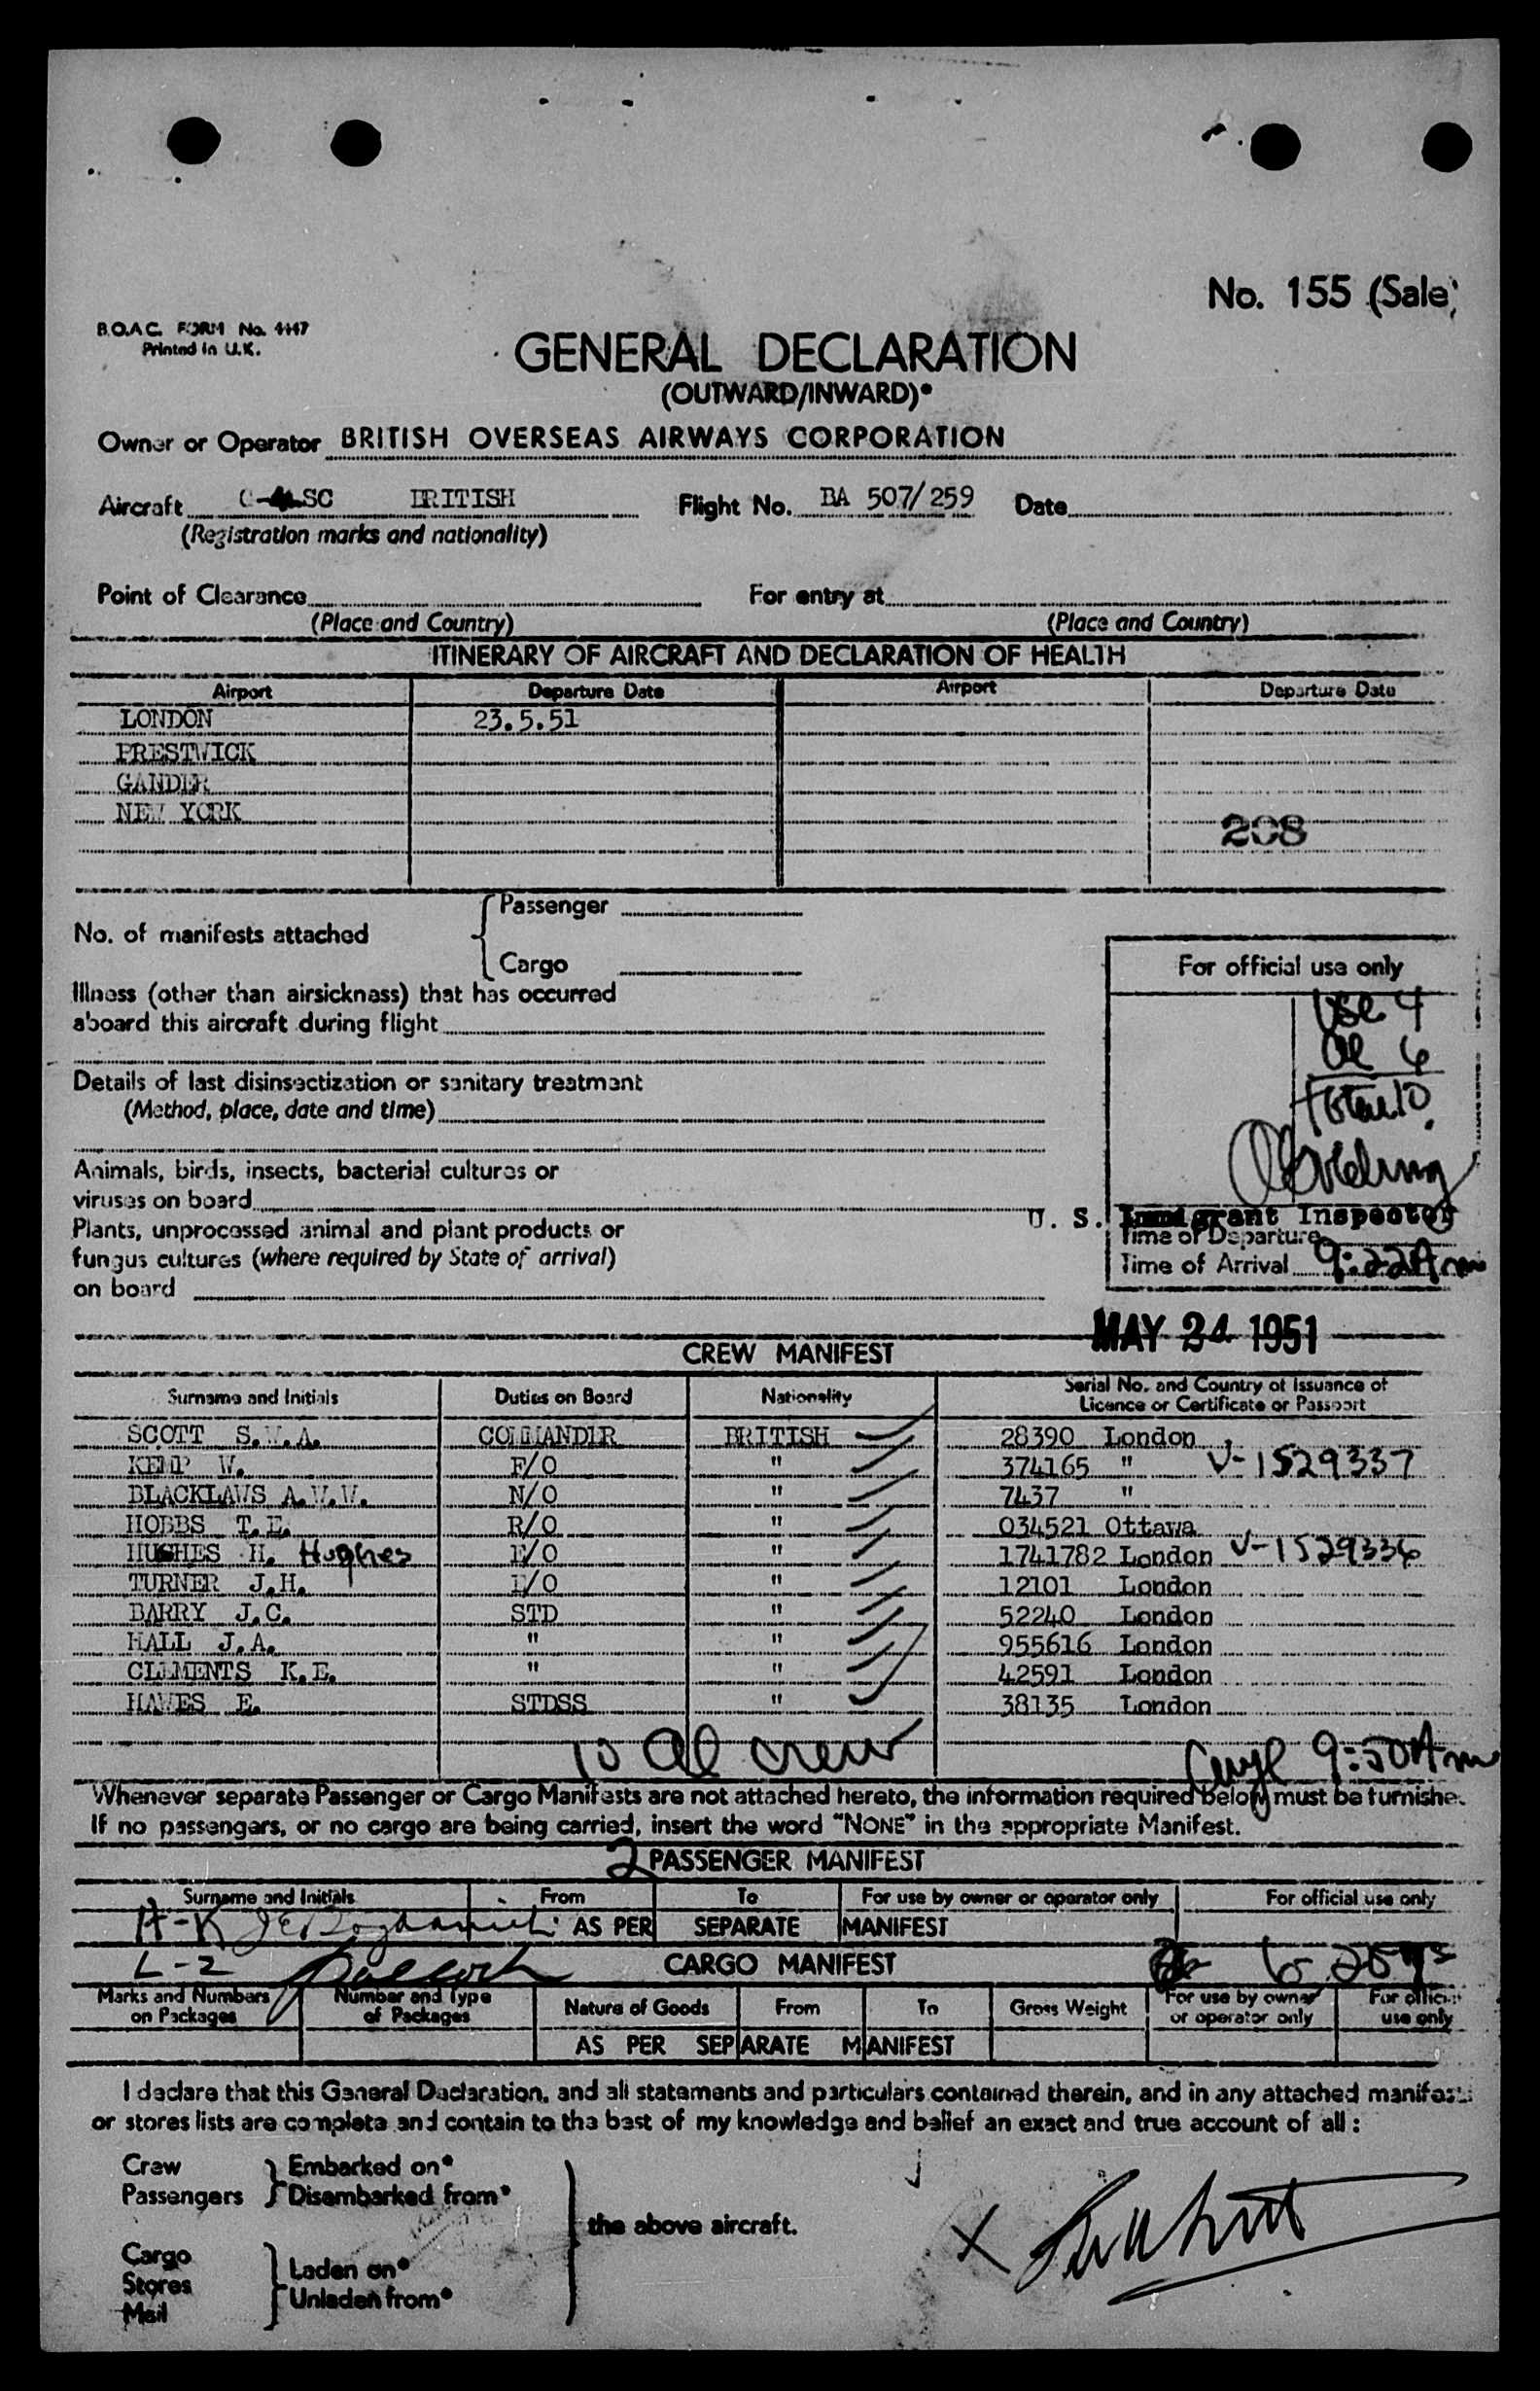 No. 155 (Sale)
B.O.A.C. FORM No. 4447
Printed in U.K.
GENERAL DECLARATION
(OUTWARD/INWARD)*
Owner or Operator BRITISH OVERSEAS AIRWAYS CORPORATION
Aircraft SC BRITISH Flight No. BA 507/259 Date
(Registration marks and nationality)
Point of Clearance For entry at
(Place and Country) (Place and Country)
ITINERARY OF AIRCRAFT AND DECLARATION OF HEALTH
Airport Departure Date Airport Departure Date
LONDON 23.5.51
PRESTWICK
GANDER
NEW YORK
208
Passenger
No. of manifests attached
Cargo
For official use only
Illness (other than airsickness) that has occurred
aboard this aircraft during flight
USC 4
al 6
Total 10
Details of last disinsectization or sanitary treatment
(Method, place, date and time)
Animals, birds, insects, bacterial cultures or
viruses on board
U. S. Immigrant Inspector
Plants, unprocessed animal and plant products or
fungus cultures (where required by State of arrival)
on board
Time of Departure
Time of Arrival 9:22 Am
MAY 24 1951
CREW MANIFEST
Surname and Initials Duties on Board Nationality Serial No. and Country of Issuance of
Licence or Certificate or Passport
SCOTT S.W.A. COMMANDER BRITISH 28390 London
KEMP W. F/O " 374165 " V-1529337
BLACKLAWS A.W.W. N/O " 7437 "
HOBBS T.E. R/O " 034521 Ottawa
HUGHES H. Hughes E/O " 1741782 London V-1529336
TURNER J.H. E/O " 12101 London
BARRY J.C. STD " 52240 London
HALL J.A. " " 955616 London
CLEMENTS K.E. " " 42591 London
HAWES E. STDSS " 38135 London
10 al crew 9:50 Am
Whenever separate Passenger or Cargo Manifests are not attached hereto, the information required below must be furnishe.
If no passengers, or no cargo are being carried, insert the word "NONE" in the appropriate Manifest.
2 PASSENGER MANIFEST
Surname and Initials From To For use by owner or operator only For official use only
A-K AS PER SEPARATE MANIFEST
L-Z
CARGO MANIFEST
Marks and Numbers on Packages Number and Type of Packages Nature of Goods From To Gross Weight For use by owner or operator only For official use only
AS PER SEPARATE MANIFEST
I declare that this General Declaration, and all statements and particulars contained therein, and in any attached manifests
or stores lists are complete and contain to the best of my knowledge and belief an exact and true account of all :
Crew Embarked on*
Passengers Disembarked from*
the above aircraft.
Cargo
Stores Laden on*
Mail Unladen from*
X